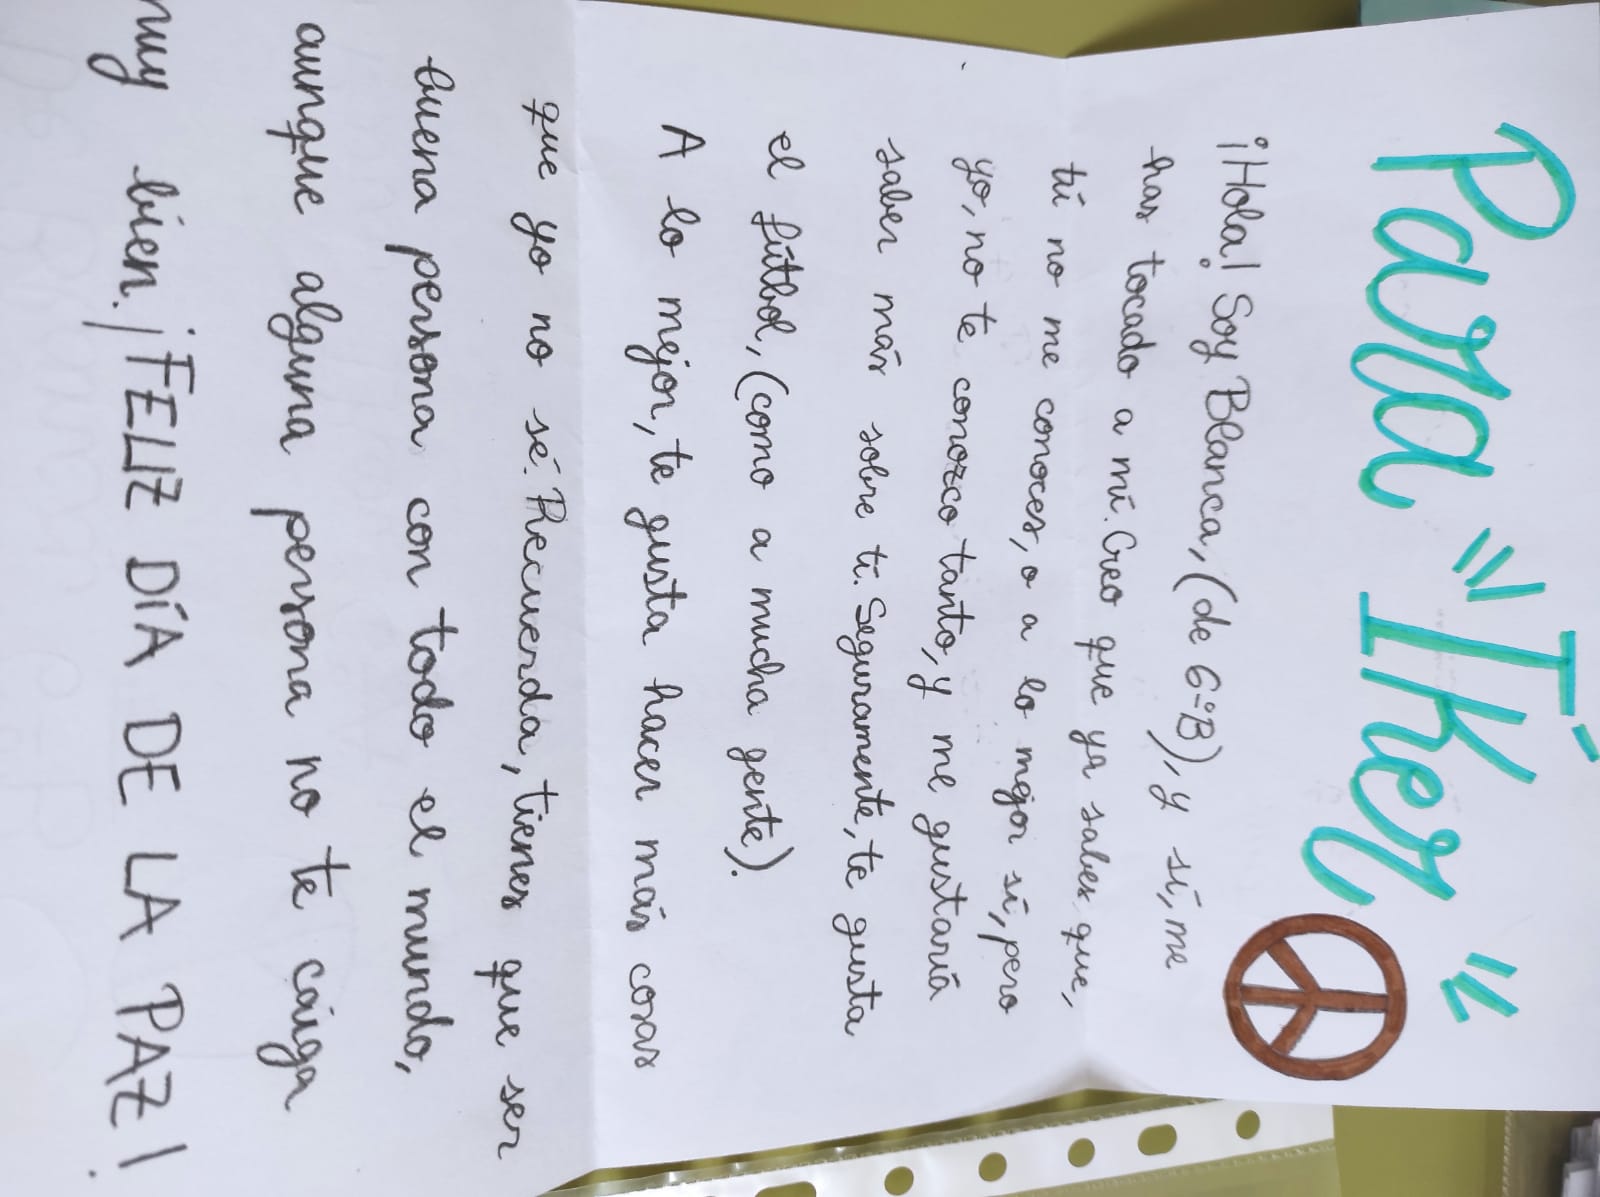 Para "Iker"
¡Hola! Soy Blanca, (de 6ºB), y sí, me
has tocado a mí. Creo que ya sabes que,
tú no me conoces, o a lo mejor sí, pero
yo, no te conozco tanto, y me gustaría
saber más sobre ti. Seguramente, te gusta
el fútbol, (como a mucha gente).
A lo mejor, te gusta hacer más cosas
que yo no sé. Recuerda, tienes que ser
buena persona con todo el mundo,
aunque alguna persona no te caiga
muy bien. ¡FELIZ DÍA DE LA PAZ!